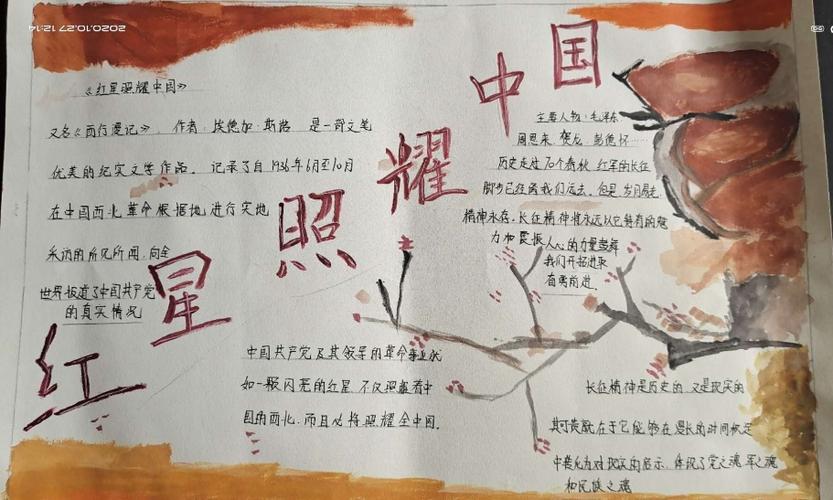 2020.10.27 12:14
红星照耀中国
《红星照耀中国》
又名《西行漫记》,作者:埃德加·斯诺 是一部文笔
优美的纪实文学作品。记录了自1936年6月至10月
在中国西北革命根据地进行实地
采访的所见所闻,向全
世界报道了中国共产党
的真实情况
主要人物:毛泽东
周恩来、贺龙、彭德怀……
历史走过70个春秋,红军的长征
脚步已经离我们远去,但是,岁月易走,
精神永存,长征精神将永远以它特有的魅
力和震撼人心的力量鼓舞
我们开拓进取
奋勇前进。
中国共产党及其领导的革命事业犹
如一颗闪亮的红星,不仅照耀着中
国的西北,而且必将照耀全中国。
长征精神是历史的,又是现实的
其可贵就在于它能够在漫长的时间
中 对现实的启示,体现了党之魂、军之魂
和民族之魂